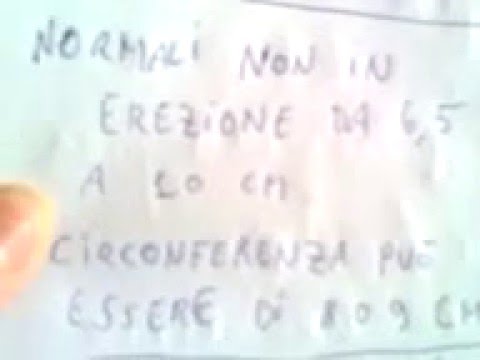 NORMALI NON IN
EREZIONE DA 6,5
A 10 CM
CIRCONFERENZA PUÒ
ESSERE DI 8 O 9 CM